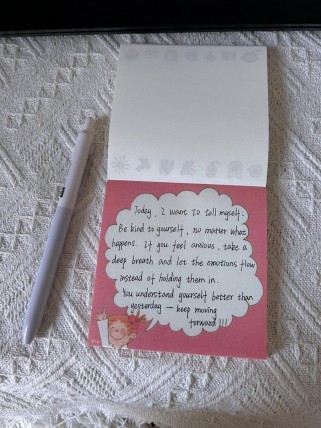 Today, I want to tell myself:
Be kind to yourself, no matter what
happens. If you feel anxious, take a
deep breath and let the emotions flow
instead of holding them in.
You understand yourself better than
yesterday — keep moving
forward!!!